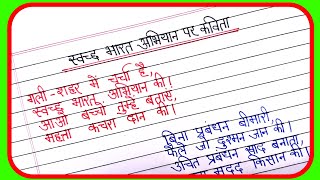 स्वच्छ भारत अभियान पर कविता
गली-शहर में चर्चा है,
स्वच्छ भारत अभियान की।
आओ बच्चों तुम्हें बताएं,
महत्ता कचरा दान की।
बिना प्रबंधन बीमारी,
फैले जो दुश्मन जान की।
उचित प्रबंधन खाद बनाता,
मदद किसान की।